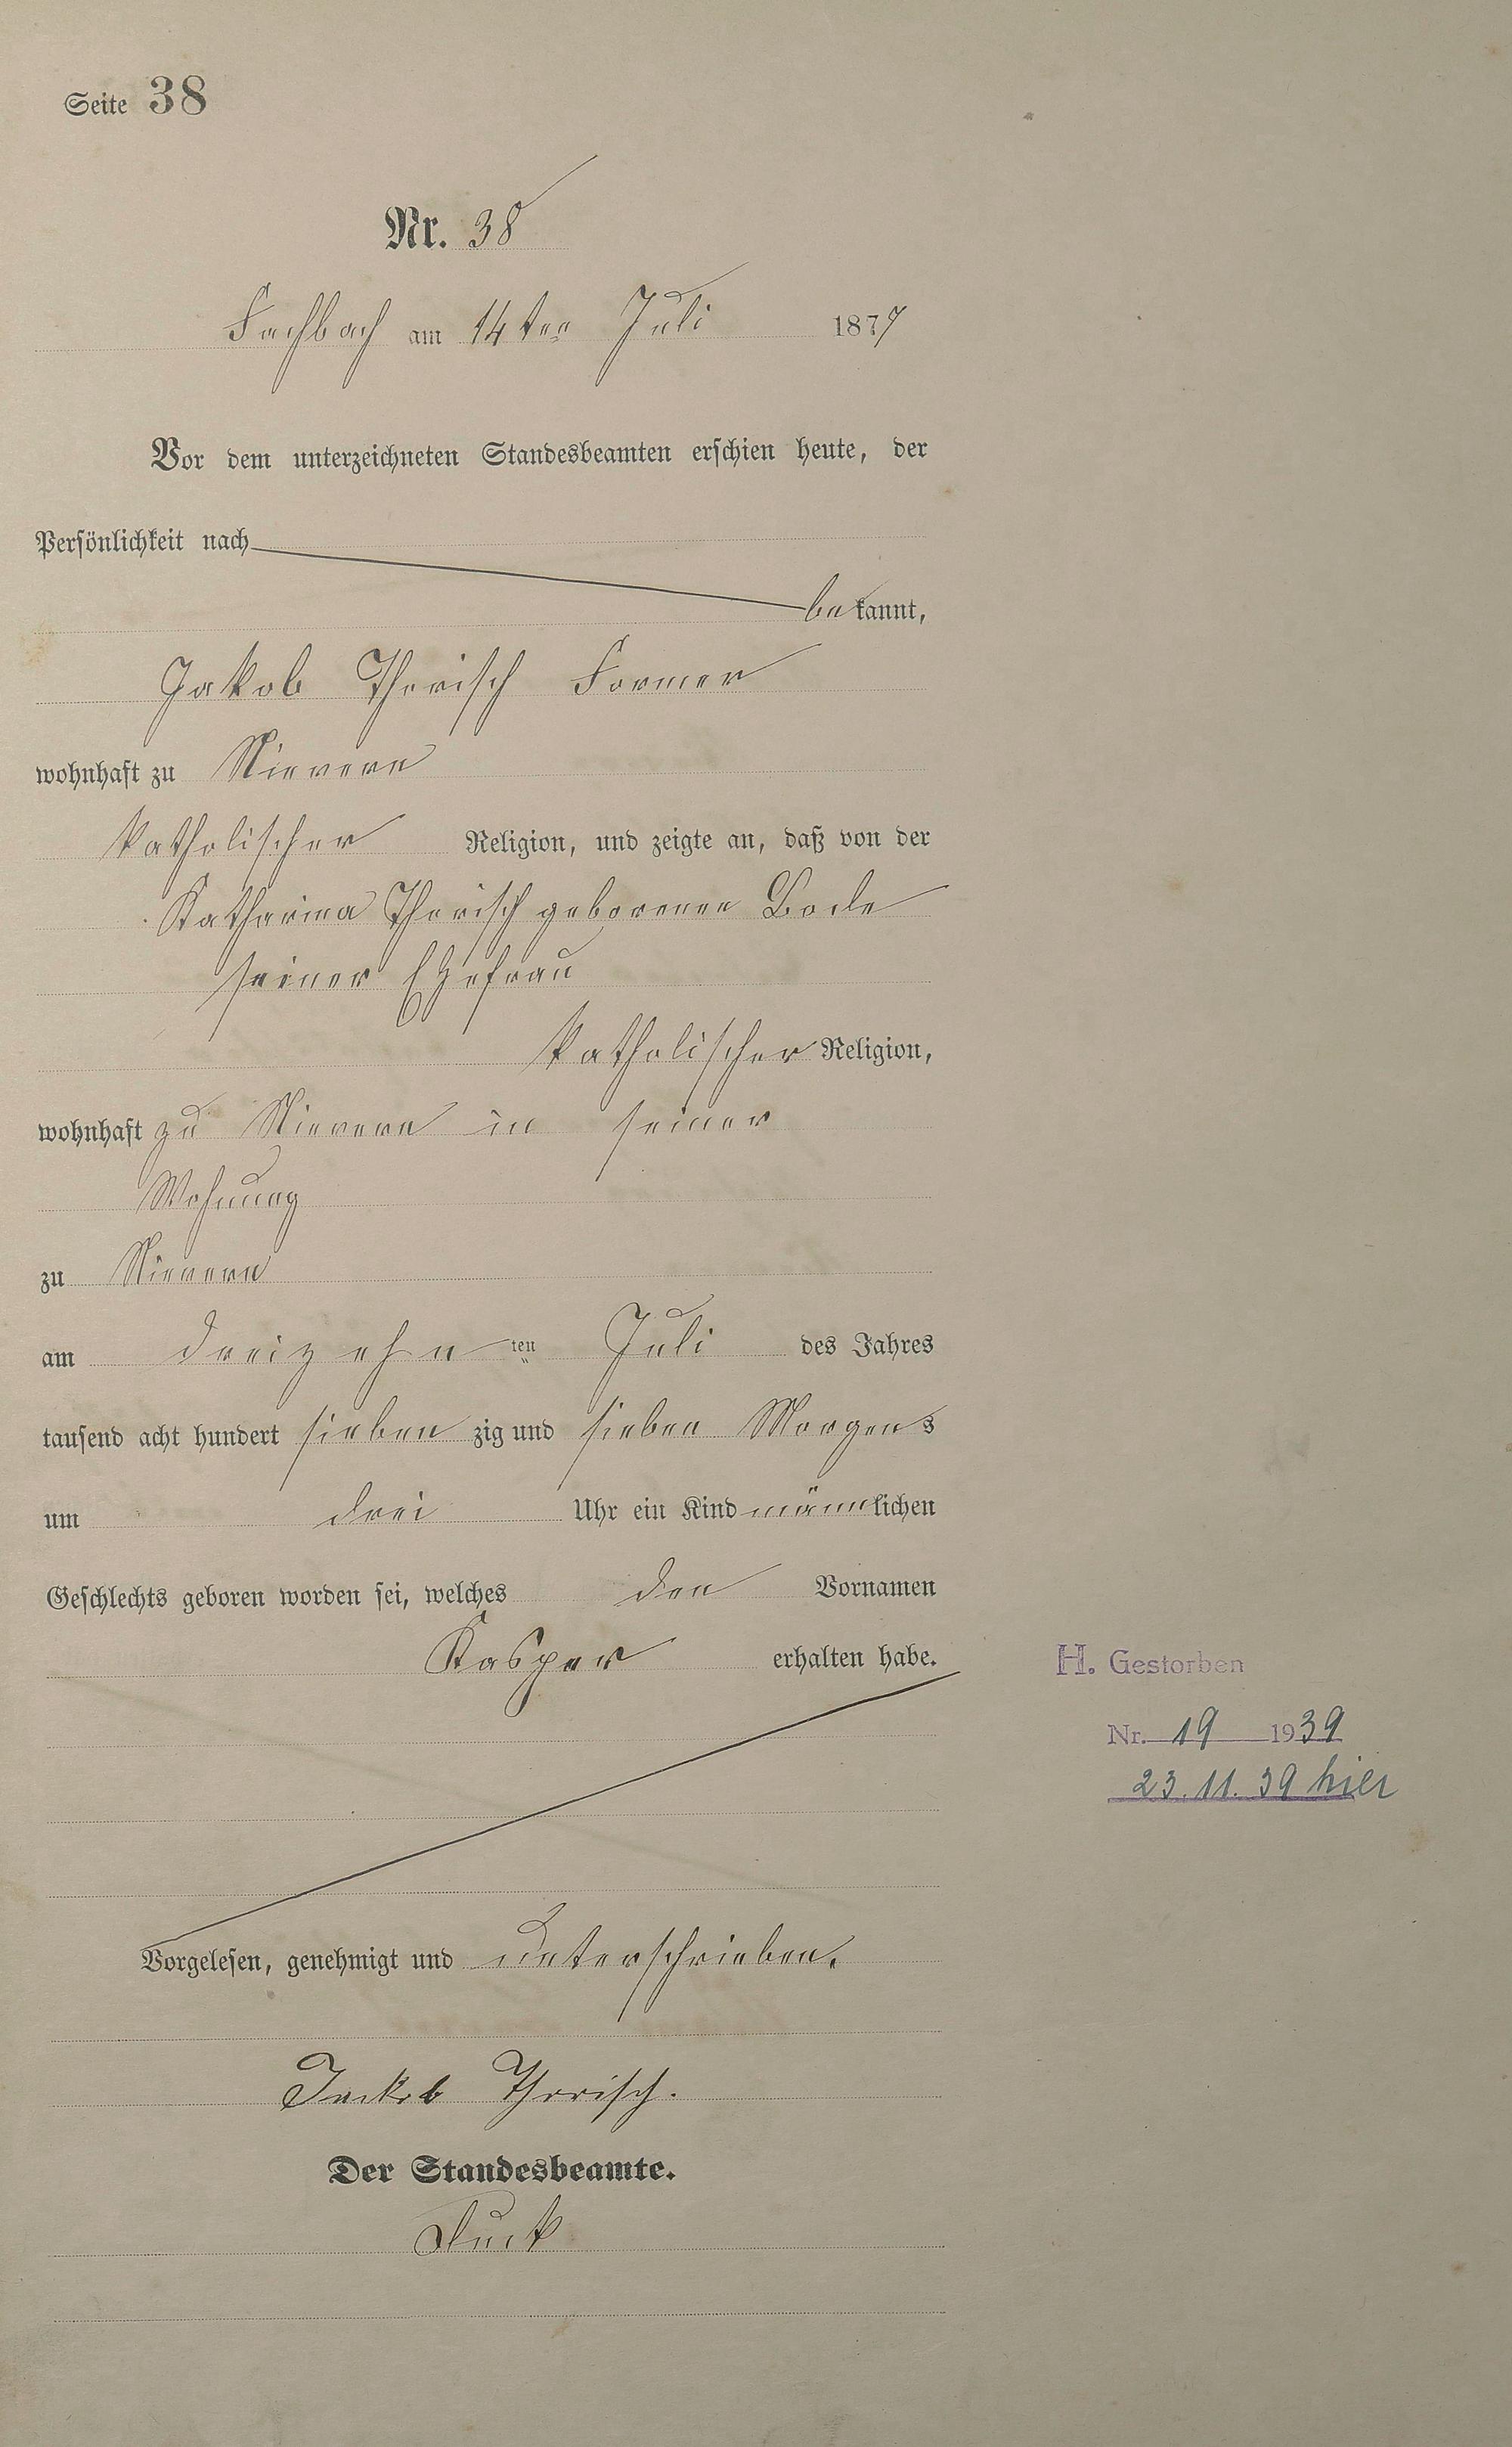 Seite 38
Nr. 38
Fachbach am 14ten Juli 1877
Vor dem unterzeichneten Standesbeamten erschien heute, der
Persönlichkeit nach
bekannt,
Jakob Theisch Former
wohnhaft zu Nievern
katholischer Religion, und zeigte an, daß von der
Katharina Theisch geborenen Bode
seiner Ehefrau
katholischer Religion,
wohnhaft zu Nievern in seiner
Wohnung
zu Nievern
am dreizehn ten Juli des Jahres
tausend acht hundert sieben zig und sieben Morgens
um drei Uhr ein Kind männlichen
Geschlechts geboren worden sei, welches den Vornamen
Kasper erhalten habe.
H. Gestorben
Nr. 19 1939
23.11.39 hier
Vorgelesen, genehmigt und unterschrieben.
Jackob Theisch.
Der Standesbeamte.